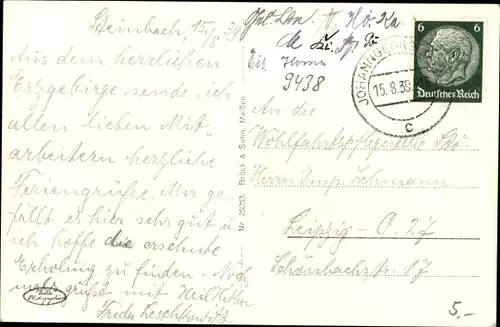 Steinbach, 15/8 39
Aus dem herrlichen
Erzgebirge sende ich
allen lieben Mit-
arbeitern herzliche
Feriengrüße. Mir ge-
fällt es hier sehr gut u.
ich hoffe die ersehnte
Erholung zu finden. Noch-
mals grüßt mit Heil Hitler
Frida
9438
Nr. 25293. Brück & Sohn, Meißen
6 6
Deutsches Reich
15.8.39
c
An die
Wohlfahrtspflegestelle
Herrn Insp. Lehmann
Leipzig - O. 27
Schönbachstr. 17
5,-